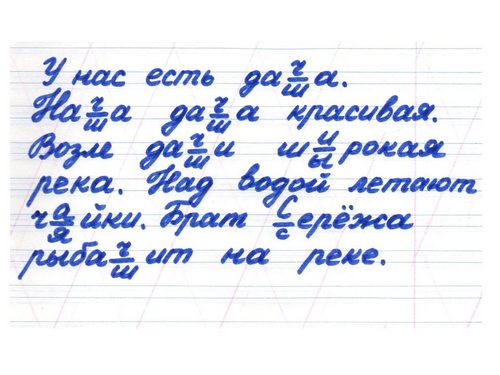 У нас есть да ч/ш а.
На ч/ш а да ч/ш а красивая.
Возле да ч/ш и ш и/ы рокая
река. Над водой летают
ч а/я йки. Брат С/с ерёжа
рыба ч/ш ит на реке.